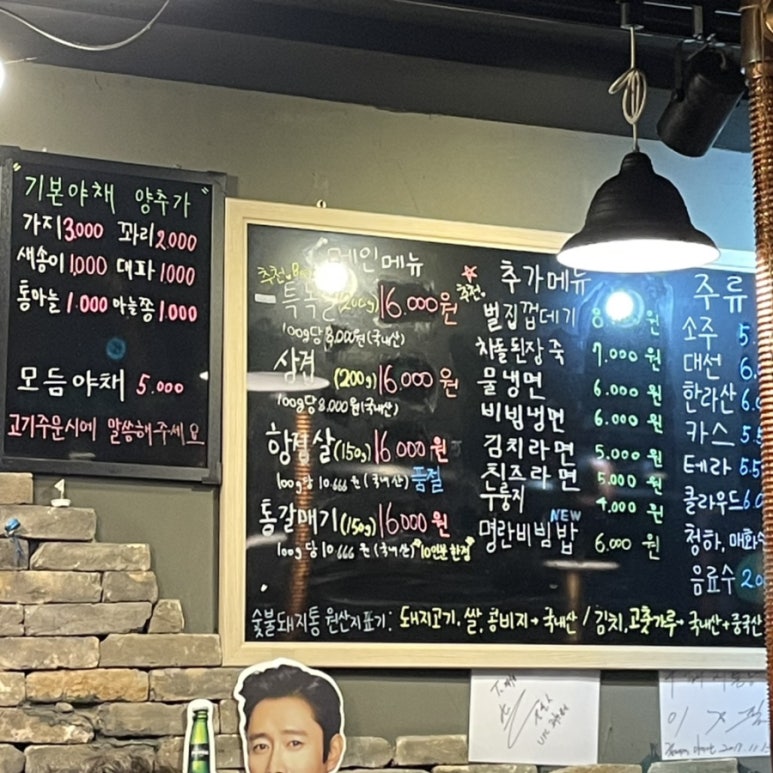 "기본야채 양추가"
가지 3.000 꽈리 2.000
새송이 1.000 대파 1.000
통마늘 1.000 마늘쫑 1.000
모듬야채 5.000
고기주문시에 말씀해주세요
메인메뉴
추천.
특목살 (200g) 16.000원
100g당 8,000원 (국내산)
삼겹 (200g) 16.000원
100g당 8.000원 (국내산)
항정살 (150g) 16.000원
100g당 10.666원 (국내산) 품절
통갈매기 (150g) 16.000원
100g당 10.666원 (국내산) *10인분 한정*
추가메뉴
추천.
벌집껍데기 원
차돌된장죽 7.000 원
물냉면 6.000 원
비빔냉면 6.000 원
김치라면 5.000 원
치즈라면 5.000 원
누룽지 4.000 원
NEW
명란비빔밥 6.000 원
주류
소주 5.
대선
한라산 6.
카스 5.5
테라 5.5
클라우드 6.0
청하, 매화수
음료수 2.0
숯불돼지통 원산지표기: 돼지고기.쌀,콩비지→국내산 / 김치,고춧가루→국내산+중국산